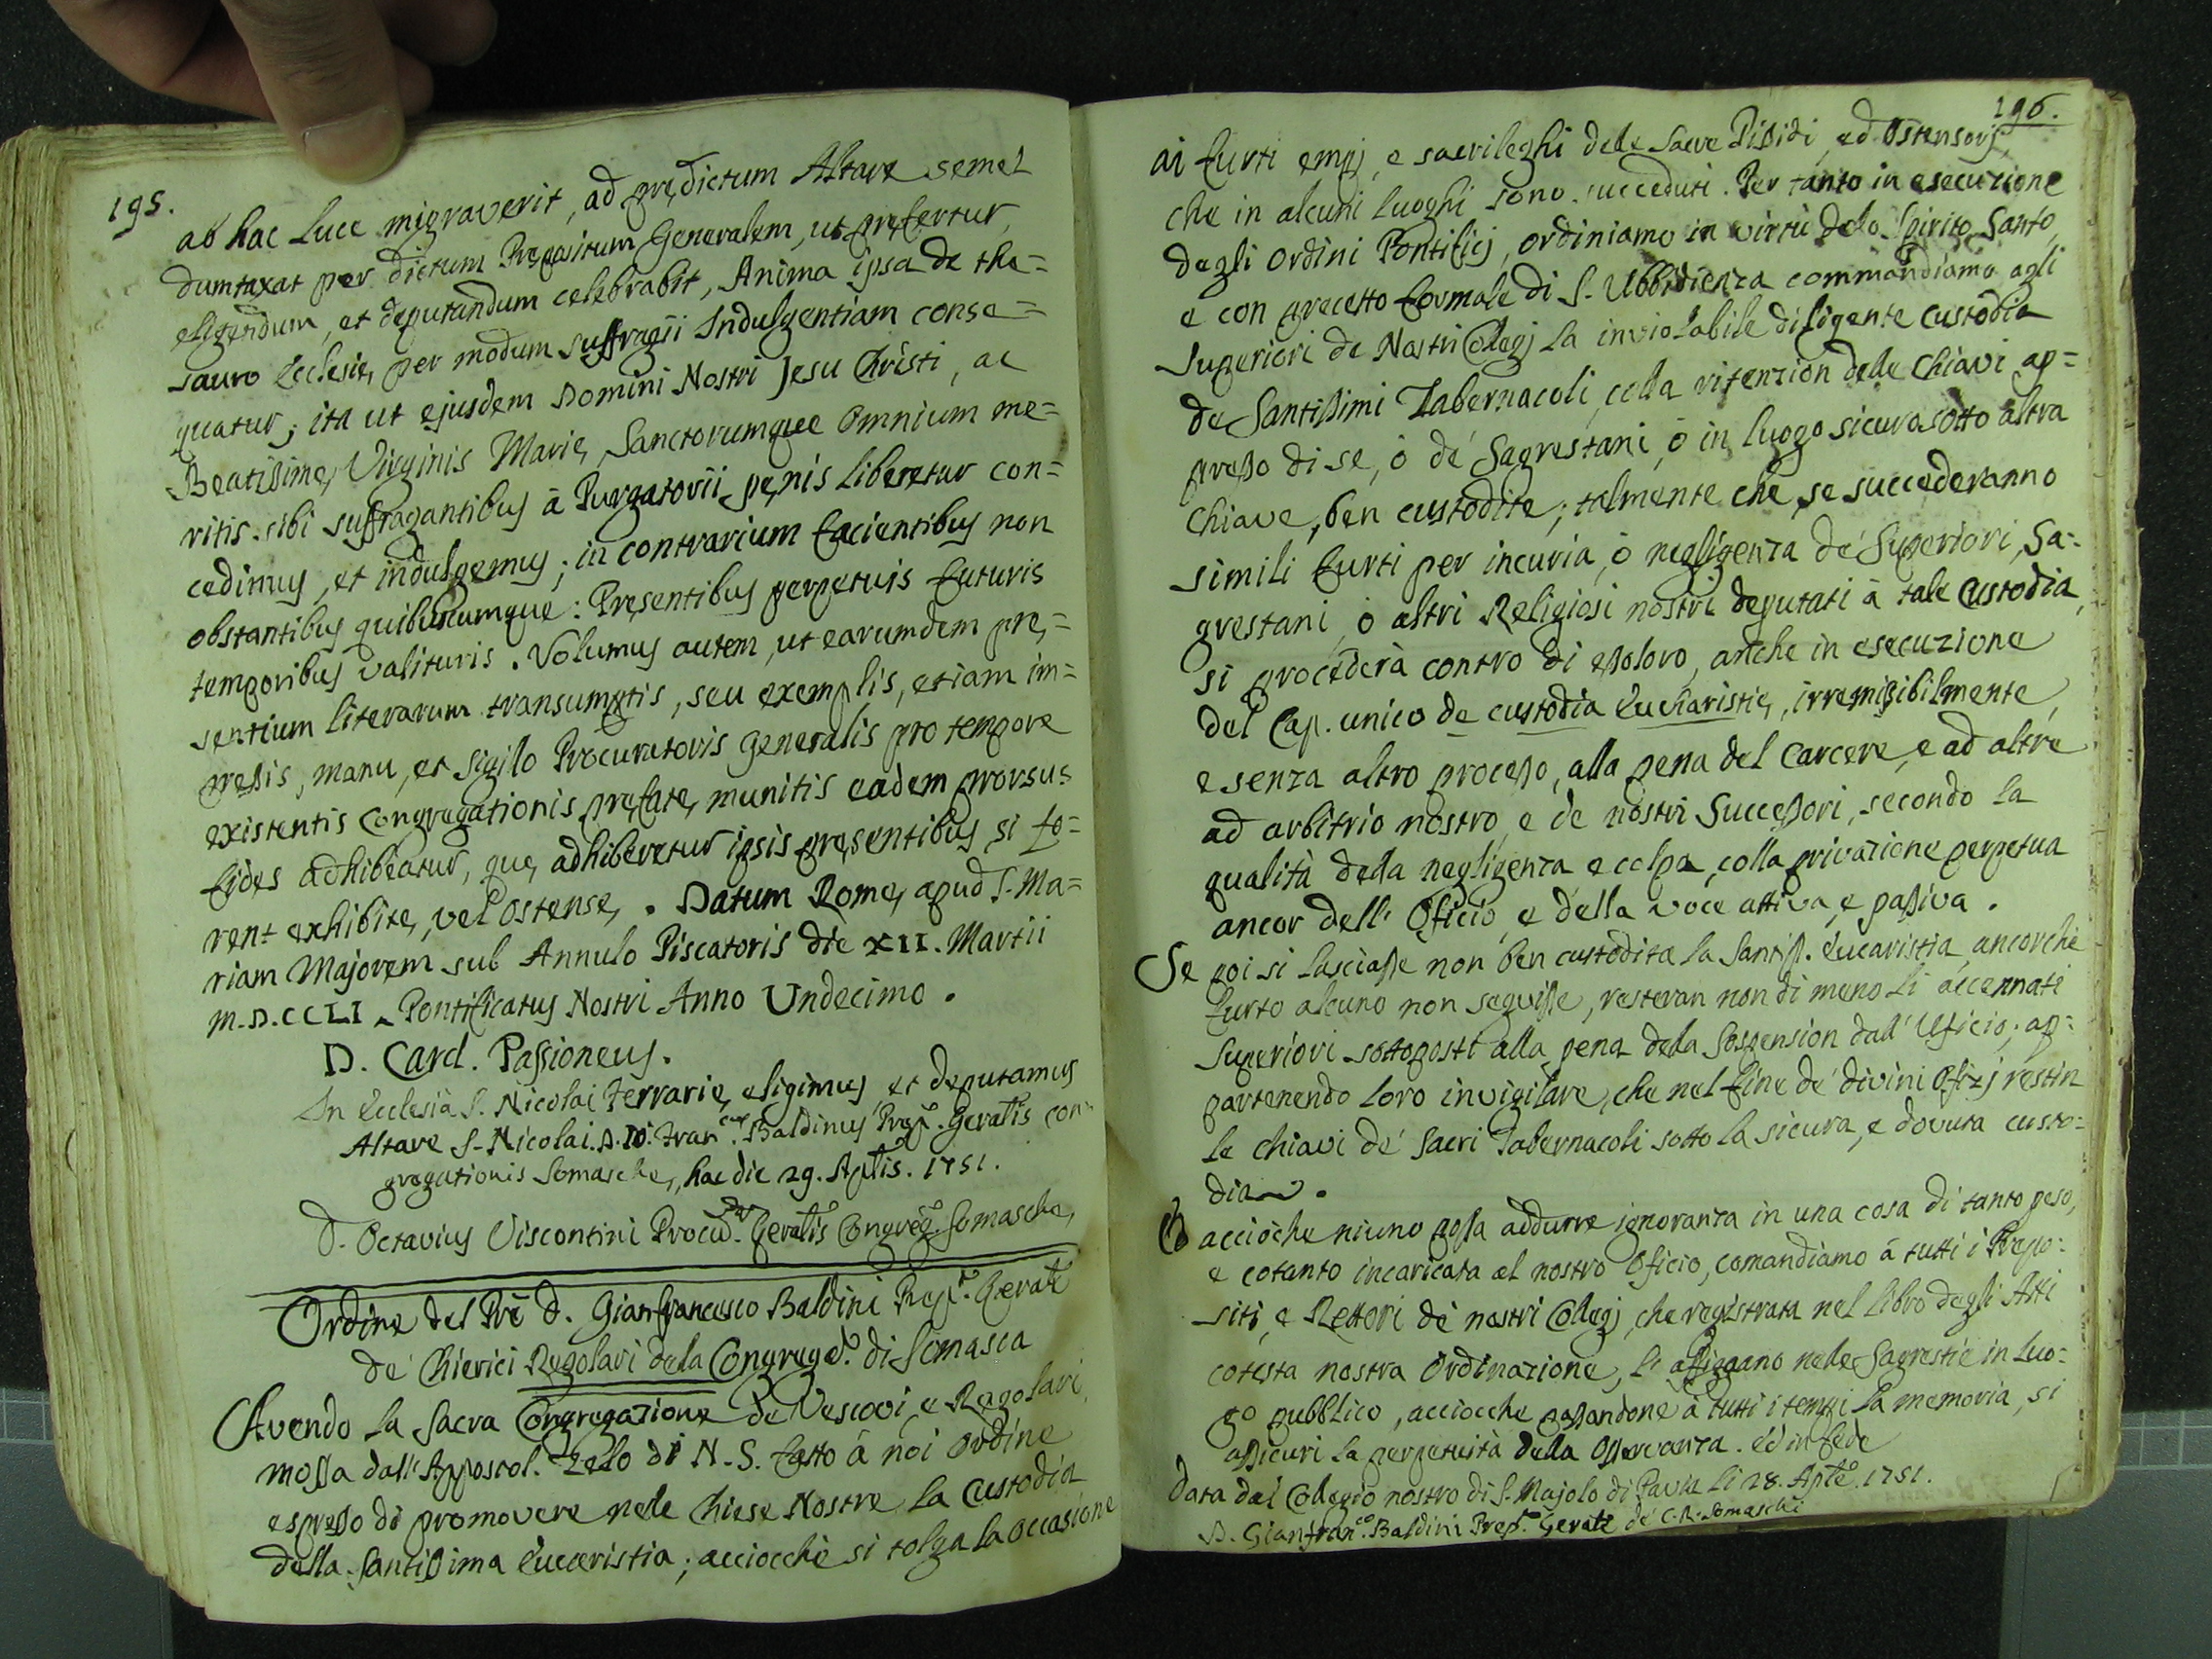 195.
ab hac luce migraverit, ad prędictum Altare semel
dumtaxat per dictum Prępositum Generalem, ut prefertur,
eligendum, et deputandum celebrabit, Anima ipsa de the=
sauro Ecclesię, per modum suffragii Indulgentiam conse=
quatur; ita ut ejusdem Domini Nostri Jesu Christi, ac
Beatissimę Virginis Marię, Sanctorumque omnium me=
ritis sibi suffragantibus à Purgatorii pęnis liberetur con=
cedimus, et indulgemus; in contrarium facientibus non
obstantibus quibuscumque: Pręsentibus perpetuis futuris
temporibus valituris. Volumus autem, ut earumdem prę=
sentium literarum transumptis, seu exemplis, etiam im=
pressis, manu, et Sigillo Procuratoris generalis pro tempore
existentis Congregationis pręfatę, munitis eadem prorsus
fides adhibeatur, quę adhiberetur ipsis pręsentibus, si fo=
rent exhibitę, vel ostensę. Datum Romę, apud S. Ma=
riam Majorem sub Annulo Piscatoris die XII. Martii
M.D.CCLI. Pontificatus Nostri Anno Undecimo.
D. Card. Passioneus.
In Ecclesia S. Nicolai Ferrarię, eligimus, et deputamus
Altare S. Nicolai. D. Io: Fran.cus Baldinus Prep.º Geralis Con=
gregationis Somaschę, hac die 29. Aplis. 1751.
D. Octavius Viscontini Procur. Geralis Congreg. Somaschę,
Ordine del Pre D. Gianfrancesco Baldini Prep.º Gerale
de' Chierici Regolari della Congreg.e di Somasca
Avendo la Sacra Congregazione de' Vescovi, e Regolari,
mossa dall' Apposcol. Zelo di N. S. fatto à noi ordine
espresso di promovere nelle Chiese Nostre la Custodia
della Santissima Eucaristia; acciocchè si tolga la occasione
196.
ai furti empj, e sacrileghi delle Sacre Pissidi, ed Ostensorj,
che in alcuni luoghi sono succeduti. Per tanto in esecuzione
degli ordini Pontificj, ordiniamo in virtù dello Spirito Santo,
e con precetto formale di S. Ubbidienza commandiamo agli
Superiori de Nostri Collegj la inviolabile diligente custodia
de Santissimi Tabernacoli, colla ritenzion delle Chiavi ap=
presso di se, ò de' Sagrestani, ò in luogo sicuro sotto altra
chiave, ben custodite; talmente che, se succederanno
simili furti per incuria, ò negligenza de' Superiori, Sa=
grestani, ò altri Religiosi nostri deputati à tale Custodia,
si procederà contro di essoloro, anche in esecuzione
del Cap. unico de custodia Eucharistię, irremissibilmente,
e senza altro processo, alla pena del Carcere, e ad altre
ad arbitrio nostro, e de nostri Successori, secondo la
qualità della negligenza e colpa, colla privazione perpetua
ancor dell' Oficio, e della voce attiva, e passiva.
Se poi si lasciasse non ben custodita la Santiss. Eucaristia, ancorchè
furto alcuno non seguisse, resteran non di meno li accennati
Superiori sottoposti alla pena della Sospension dall' Uficio; ap=
partenendo loro invigilare, che nel fine de' divini Ofizj restin
le chiavi de' Sacri Tabernacoli sotto la sicura, e dovuta custo=
dia.
E acciòche niuno possa addurre ignoranza in una cosa di tanto peso,
e cotanto incaricata al nostro Oficio, comandiamo à tutti i Prepo=
siti, e Rettori de' nostri Collegj, che registrata nel libro degli Atti
cotesta nostra Ordinazione, la affiggano nelle Sagrestie in luo=
go pubblico, acciocche passandone à tutti i tempi la memoria, si
assicuri la perpetuità della Osservanza. Ed in fede
Data dal Collegio nostro di S. Majolo di Pavia li 28. Aple. 1751.
D. Gianfran.co Baldini Prep.º Gerale de' C. R. Somaschi